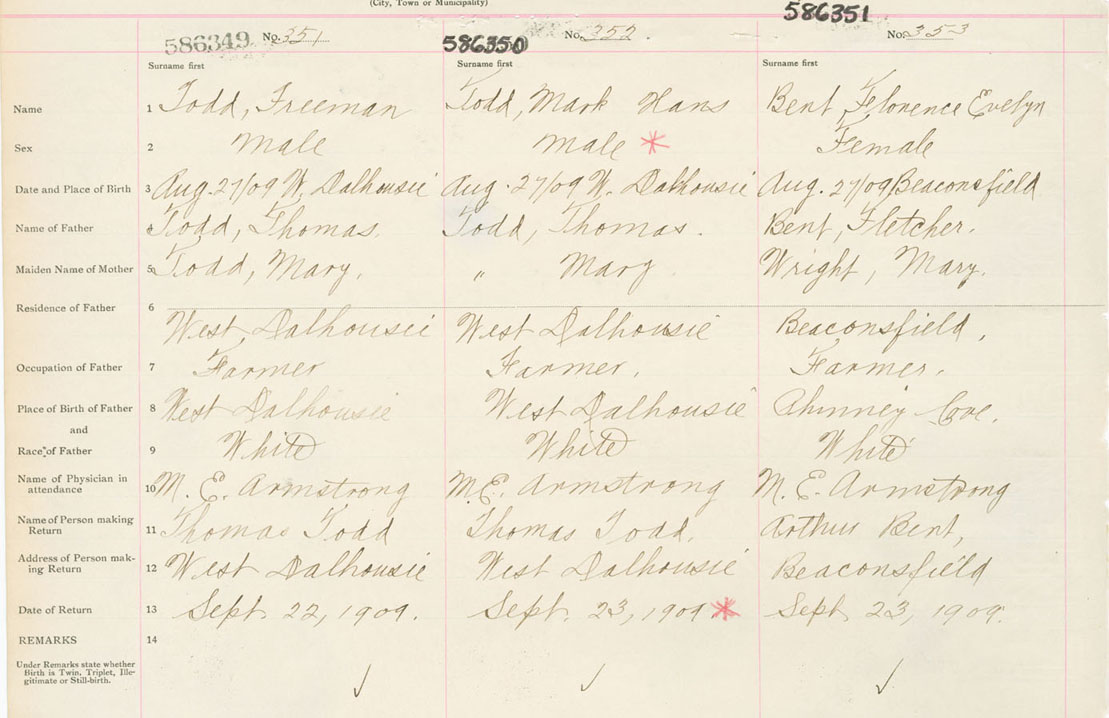 (City, Town or Municipality)
586349 No. 351 586350 No. 352. 586351 No. 353
Surname first Surname first Surname first
Name 1 Todd, Freeman Todd, Mark Hans Bent, Florence Evelyn
Sex 2 Male Male * Female
Date and Place of Birth 3 Aug. 27/09 W. Dalhousie Aug. 27/09 W. Dalhousie Aug. 27/09 Beaconsfield
Name of Father 4 Todd, Thomas. Todd, Thomas. Bent, Fletcher.
Maiden Name of Mother 5 Todd, Mary. " Mary Wright, Mary.
Residence of Father 6
West Dalhousie West Dalhousie Beaconsfield,
Occupation of Father 7 Farmer Farmer. Farmer.
Place of Birth of Father 8 West Dalhousie West Dalhousie Chinney Cove.
and
Race of Father 9 White White White
Name of Physician in
attendance 10 M. E. Armstrong M. E. Armstrong M. E. Armstrong
Name of Person making
Return 11 Thomas Todd Thomas Todd. Arthur Bent,
Address of Person mak-
ing Return 12 West Dalhousie West Dalhousie Beaconsfield
Date of Return 13 Sept. 22, 1909. Sept. 23, 1909 * Sept. 23, 1909.
REMARKS 14
Under Remarks state whether
Birth is Twin, Triplet, Ille-
gitimate or Still-birth. ✓ ✓ ✓